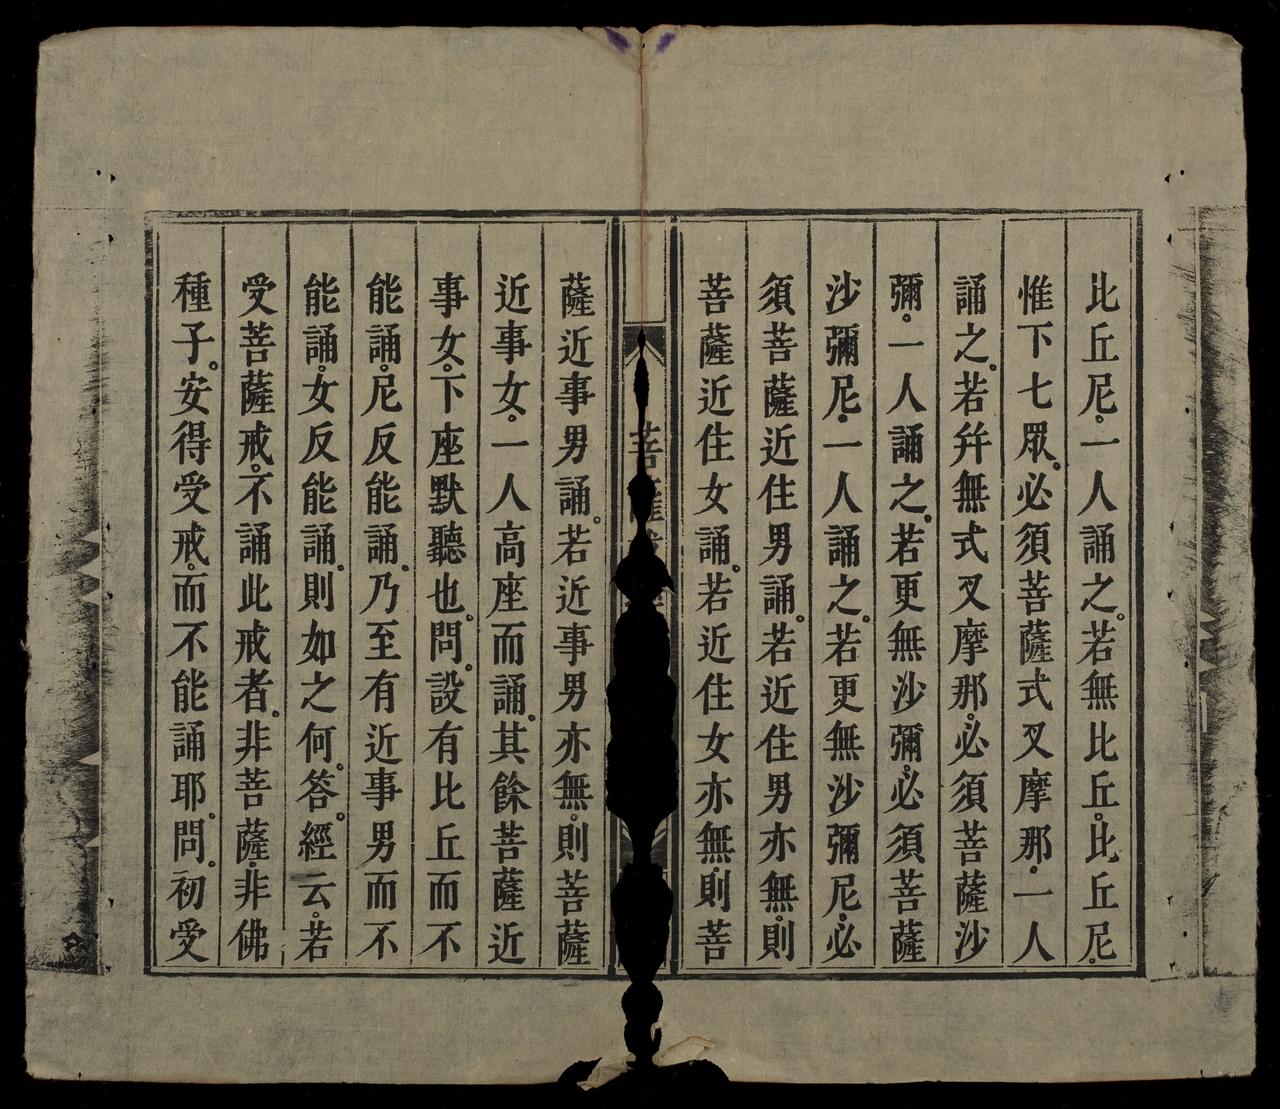 比丘尼。一人誦之。若無比丘。比丘尼。
惟下七眾。必須菩薩式叉摩那。一人
誦之。若幷無式叉摩那。必須菩薩沙
彌。一人誦之。若更無沙彌。必須菩薩
沙彌尼。一人誦之。若更無沙彌尼。必
須菩薩近住男誦。若近住男亦無。則
菩薩近住女誦。若近住女亦無。則菩
菩薩
薩近事男誦。若近事男亦無。則菩薩
近事女。一人高座而誦。其餘菩薩近
事女。下座默聽也。問。設有比丘而不
能誦。尼反能誦。乃至有近事男而不
能誦。女反能誦。則如之何。答。經云。若
受菩薩戒。不誦此戒者。非菩薩。非佛
種子。安得受戒。而不能誦耶。問。初受